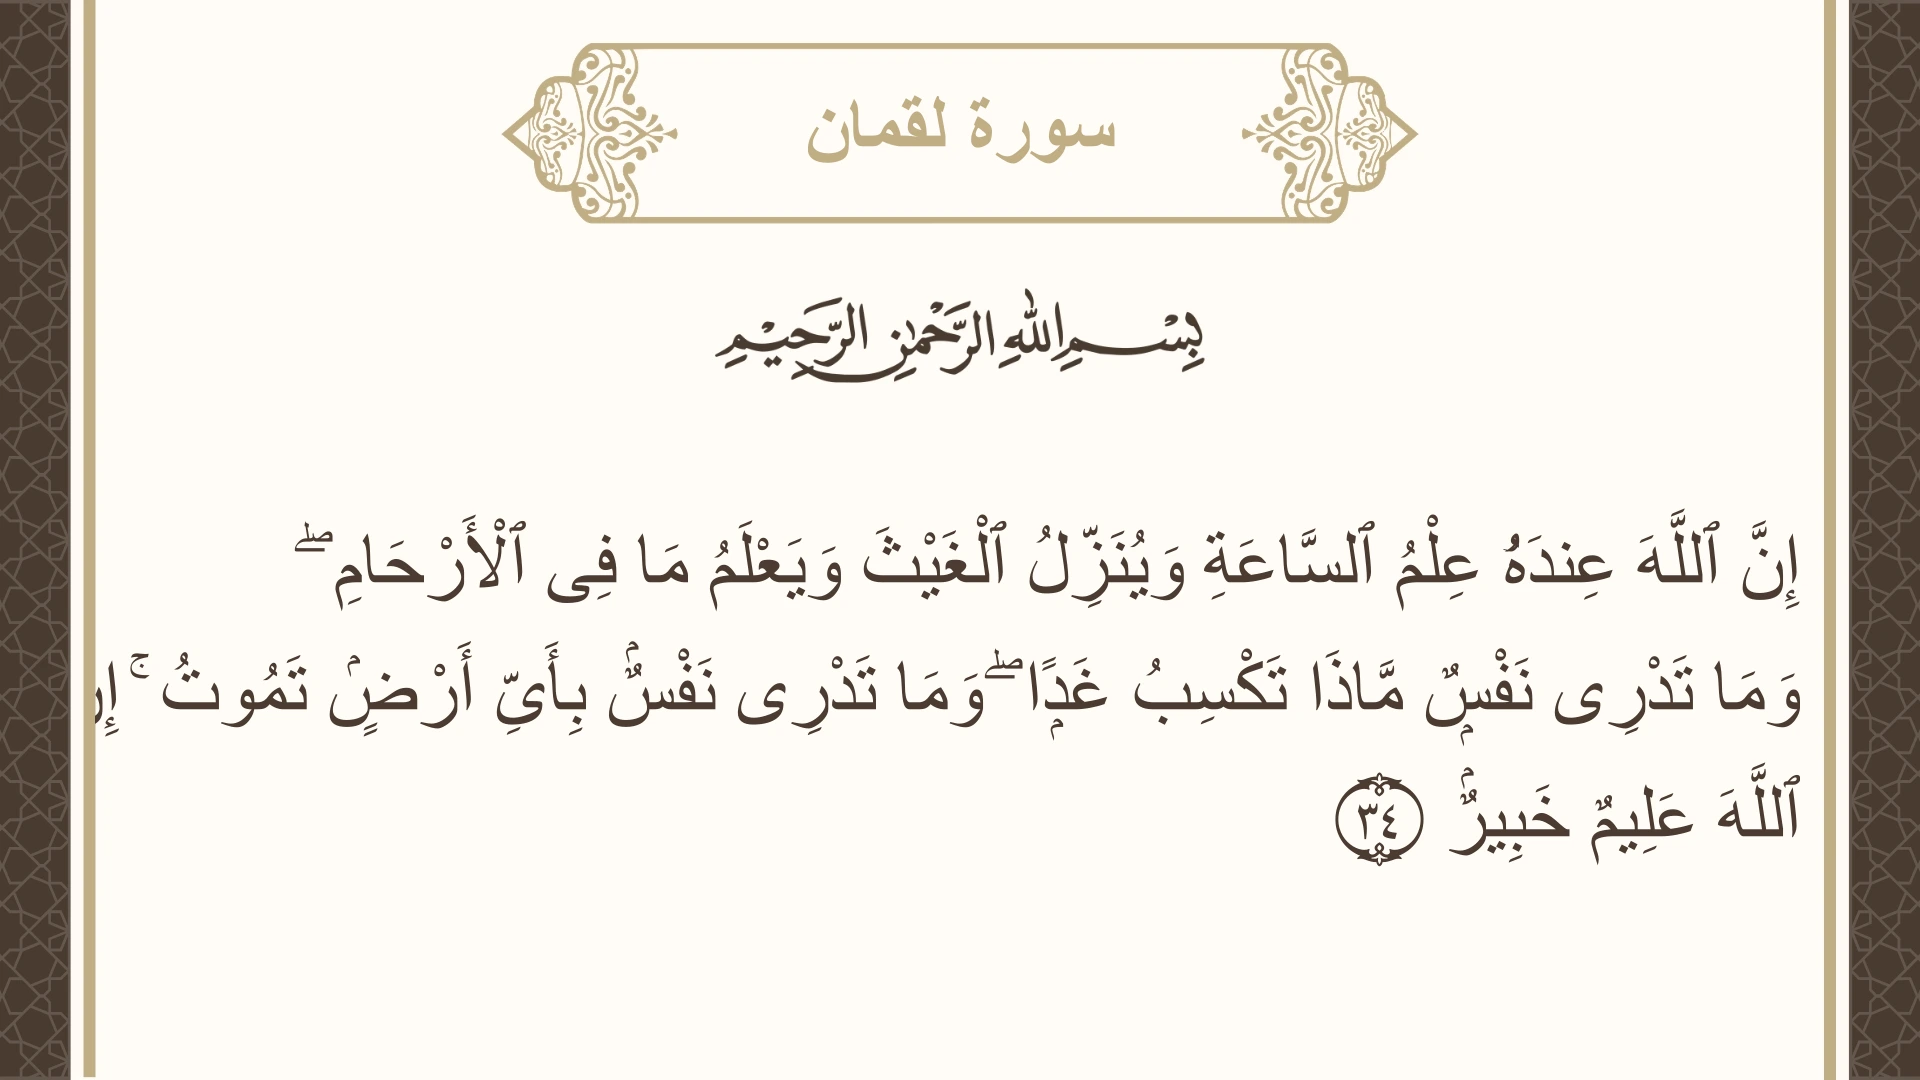 سورة لقمان
بِسْمِ اللهِ الرَّحْمٰنِ الرَّحِيْمِ
إِنَّ ٱللَّهَ عِندَهُۥ عِلْمُ ٱلسَّاعَةِ وَيُنَزِّلُ ٱلْغَيْثَ وَيَعْلَمُ مَا فِى ٱلْأَرْحَامِ ۖ
وَمَا تَدْرِى نَفْسٌۭ مَّاذَا تَكْسِبُ غَدًۭا ۖ وَمَا تَدْرِى نَفْسٌۢ بِأَىِّ أَرْضٍۢ تَمُوتُ ۚ
ٱللَّهَ عَلِيمٌ خَبِيرٌۢ ٣٤